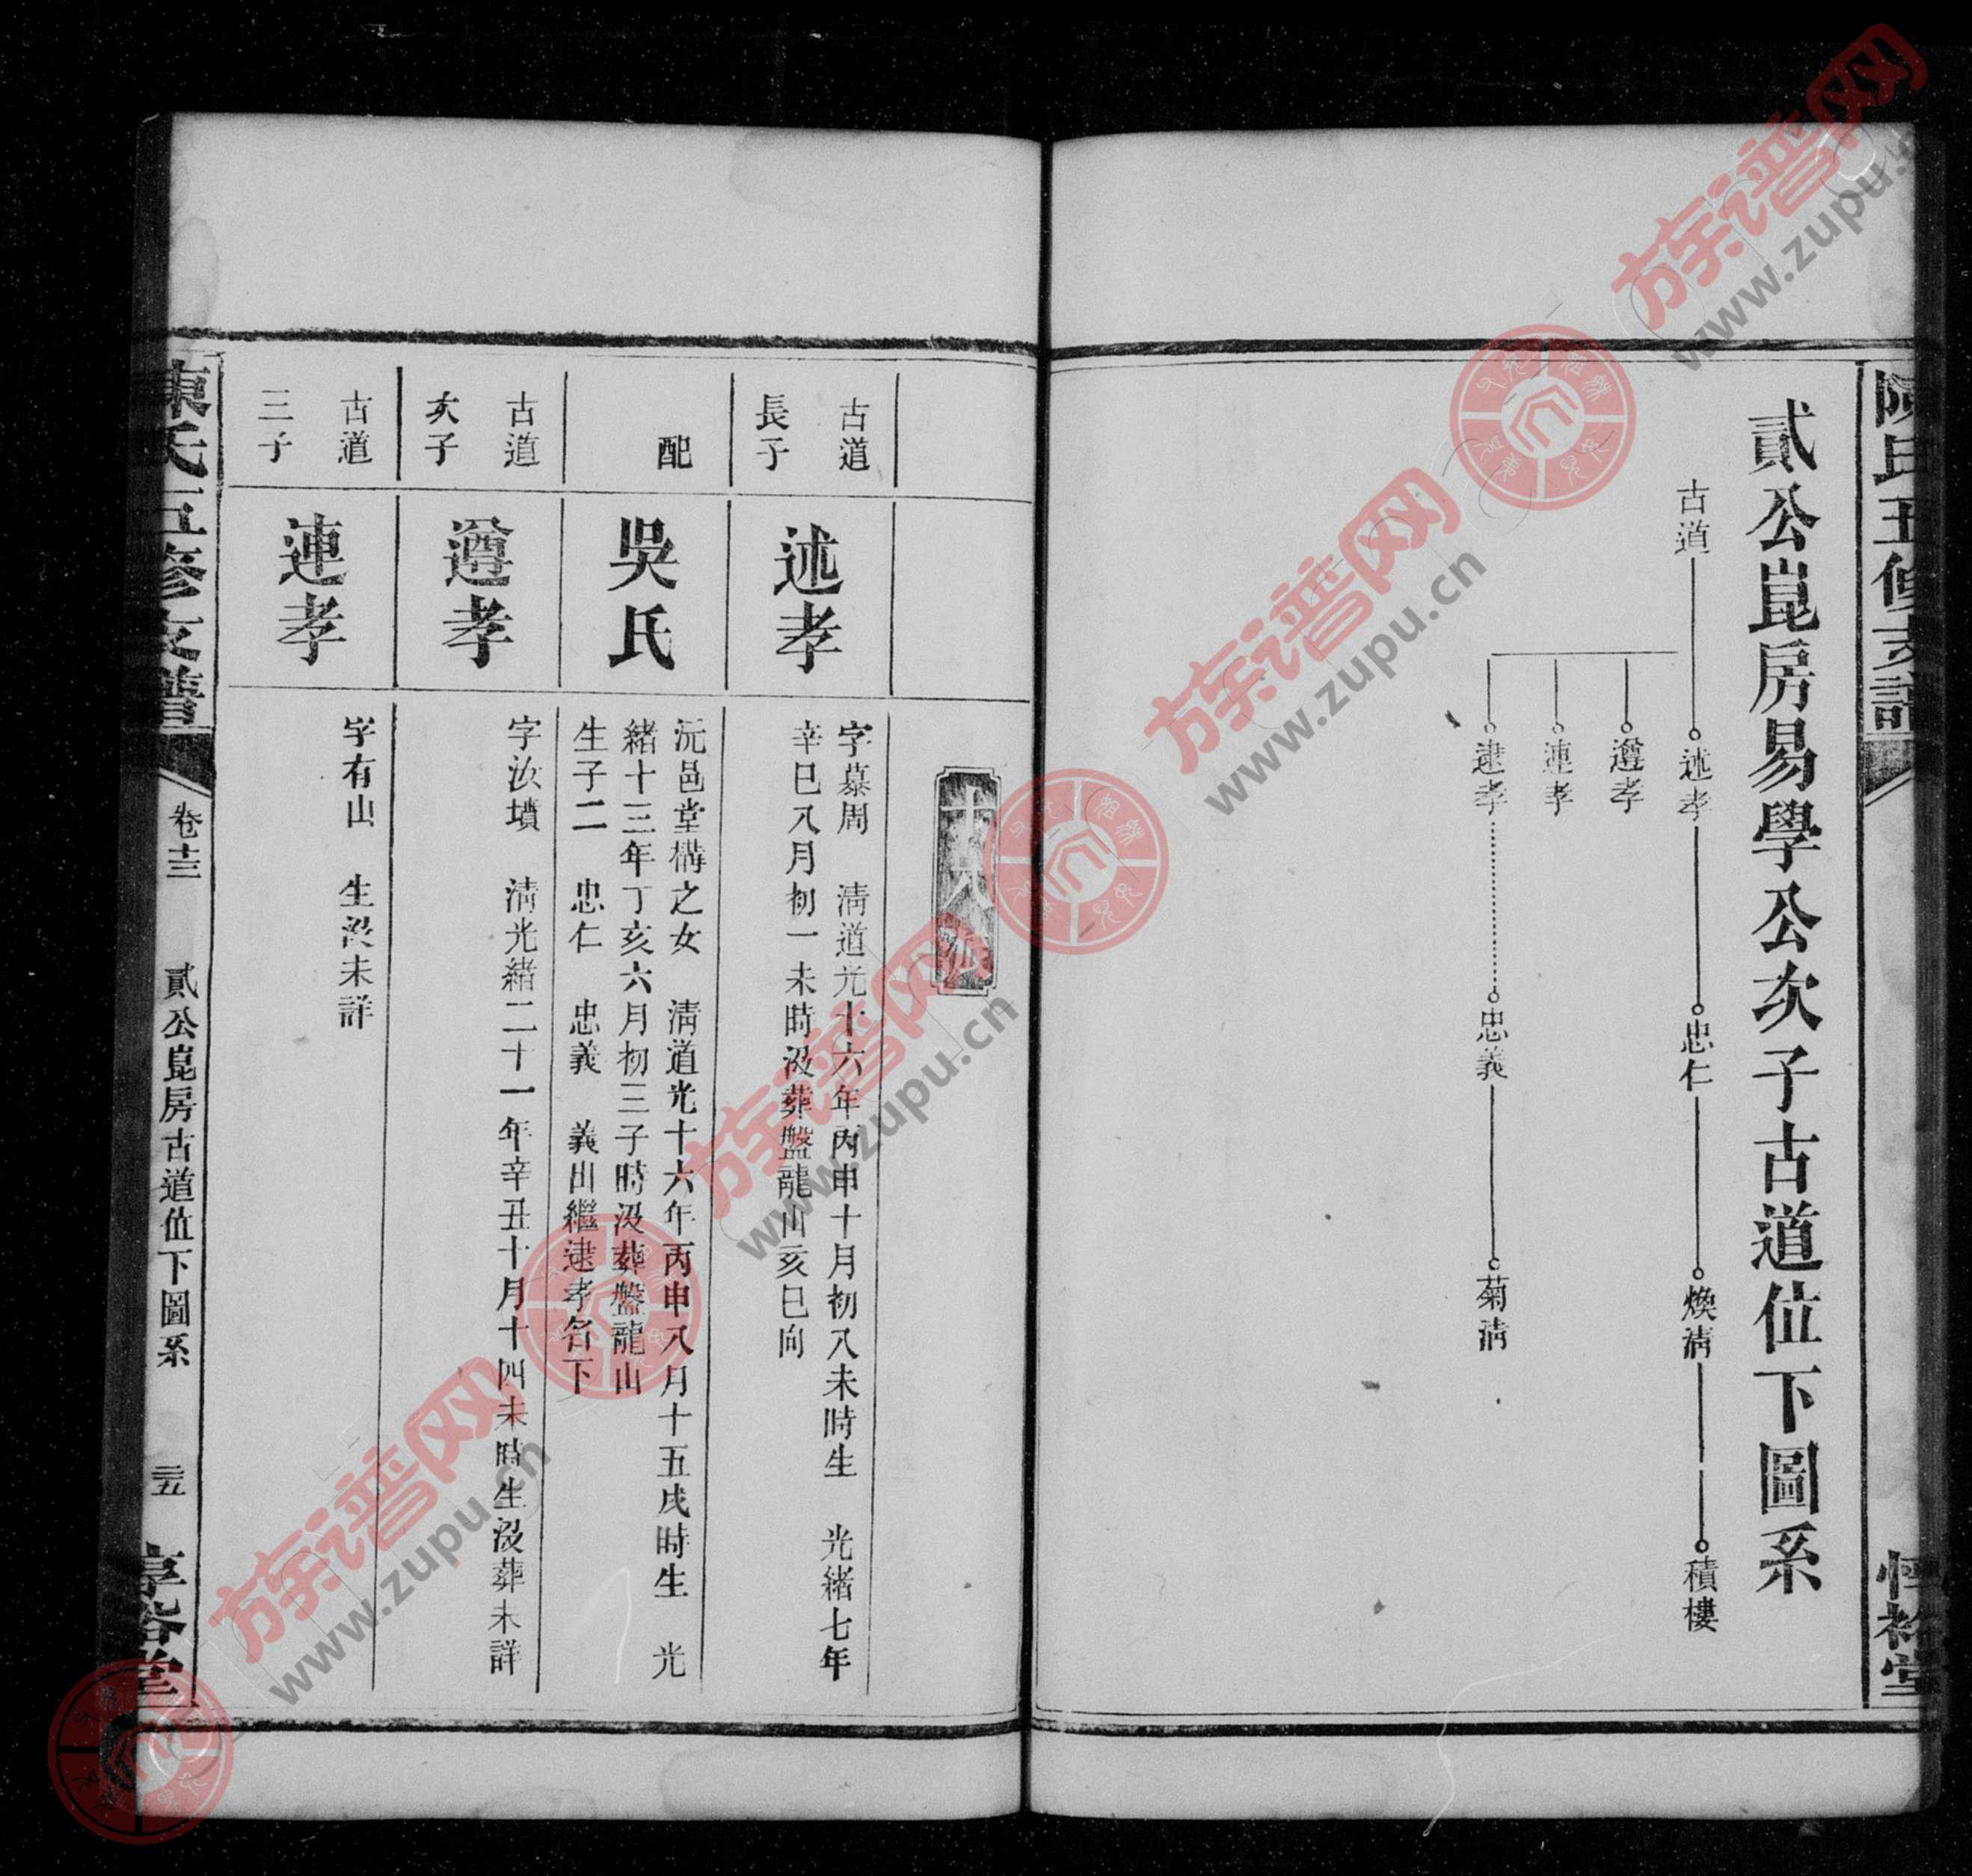 陳氏五修支譜
貳公崑房易學公次子古道位下圖系
古道
述孝
忠仁
煥淸
積樓
遵孝
連孝
逮孝
忠義
菊淸
古道
長子
述孝
字慕周　淸道光十六年丙申十月初八未時生　光緒七年
辛巳八月初一未時沒葬盤龍山亥巳向
配
吳氏
沅邑堂構之女　淸道光十六年丙申八月十五戌時生　光
緒十三年丁亥六月初三子時沒葬盤龍山
生子二　忠仁　忠義　義出繼逮孝名下
古道
次子
遵孝
字汝墳　淸光緒二十一年辛丑十月十四未時生沒葬未詳
古道
三子
連孝
字有山　生沒未詳
陳氏五修支譜
卷十三
貳公崑房古道位下圖系
三五
族谱网
www.zupu.cn
族谱网
www.zupu.cn
族谱网
www.zupu.cn
族谱网
www.zupu.cn